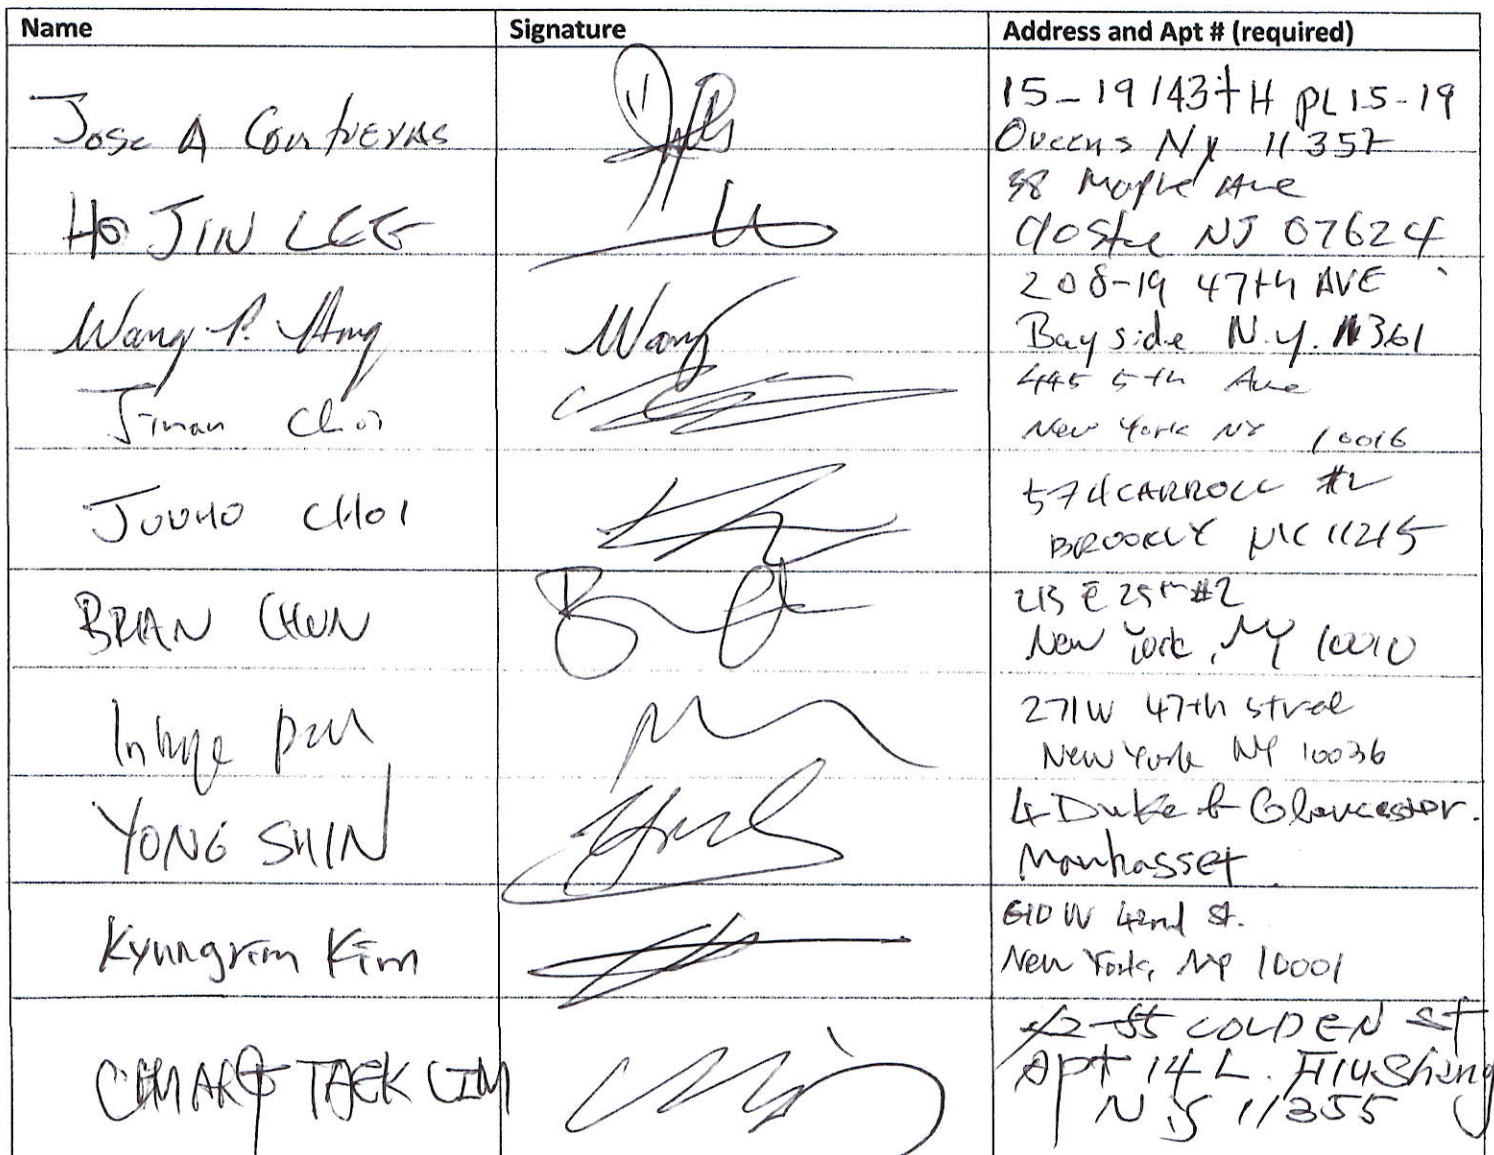 Name Signature Address and Apt # (required)
Jose A Contreras
15-19 143tH PL 15-19
Queens Ny 11357
HO JIN LEE
38 Maple Ave
Closter NJ 07624
Wang P.
Wang
208-19 47th AVE
Bayside N.Y. 11361
Jiman Choi
445 5th Ave
New York NY 10016
JUUHO CHOI
574 CARROLL #2
BROOKLY NY 11215
BRIAN CHUN
213 E 25th #2
New York, NY 10010
Inhye
271W 47th street
New York NY 10036
YONG SHIN
4 Duke of Gloucester.
Manhasset
Kyungrim Kim
610 W 42nd St.
New York, NY 10001
TAEK LIM
42-55 COLDEN ST
Apt 14 L. Flushing
N.Y 11355